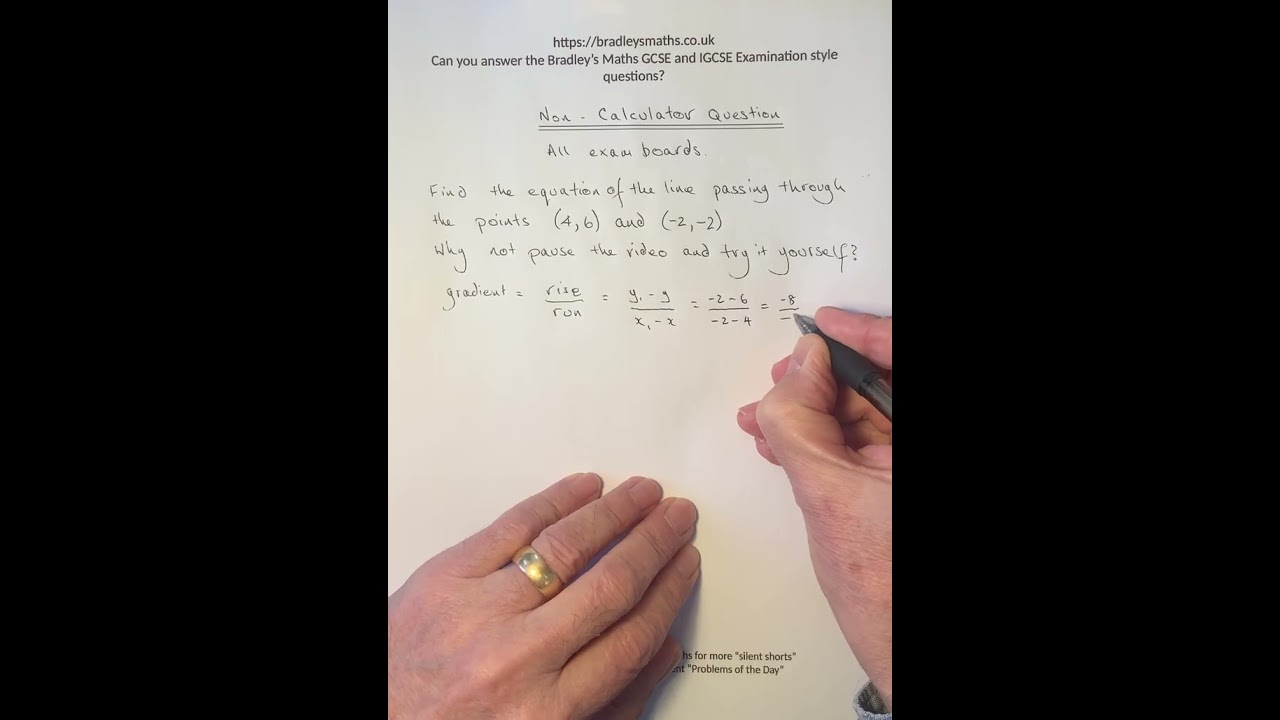 https://bradleysmaths.co.uk
Can you answer the Bradley's Maths GCSE and IGCSE Examination style
questions?
Non - Calculator Question
All exam boards.
Find the equation of the line passing through
the points (4,6) and (-2,-2)
Why not pause the video and try it yourself?
gradient = rise/run = y₁ - y/x₁ - x = -2-6/-2-4 = -8/-
for more "silent shorts"
"Problems of the Day"